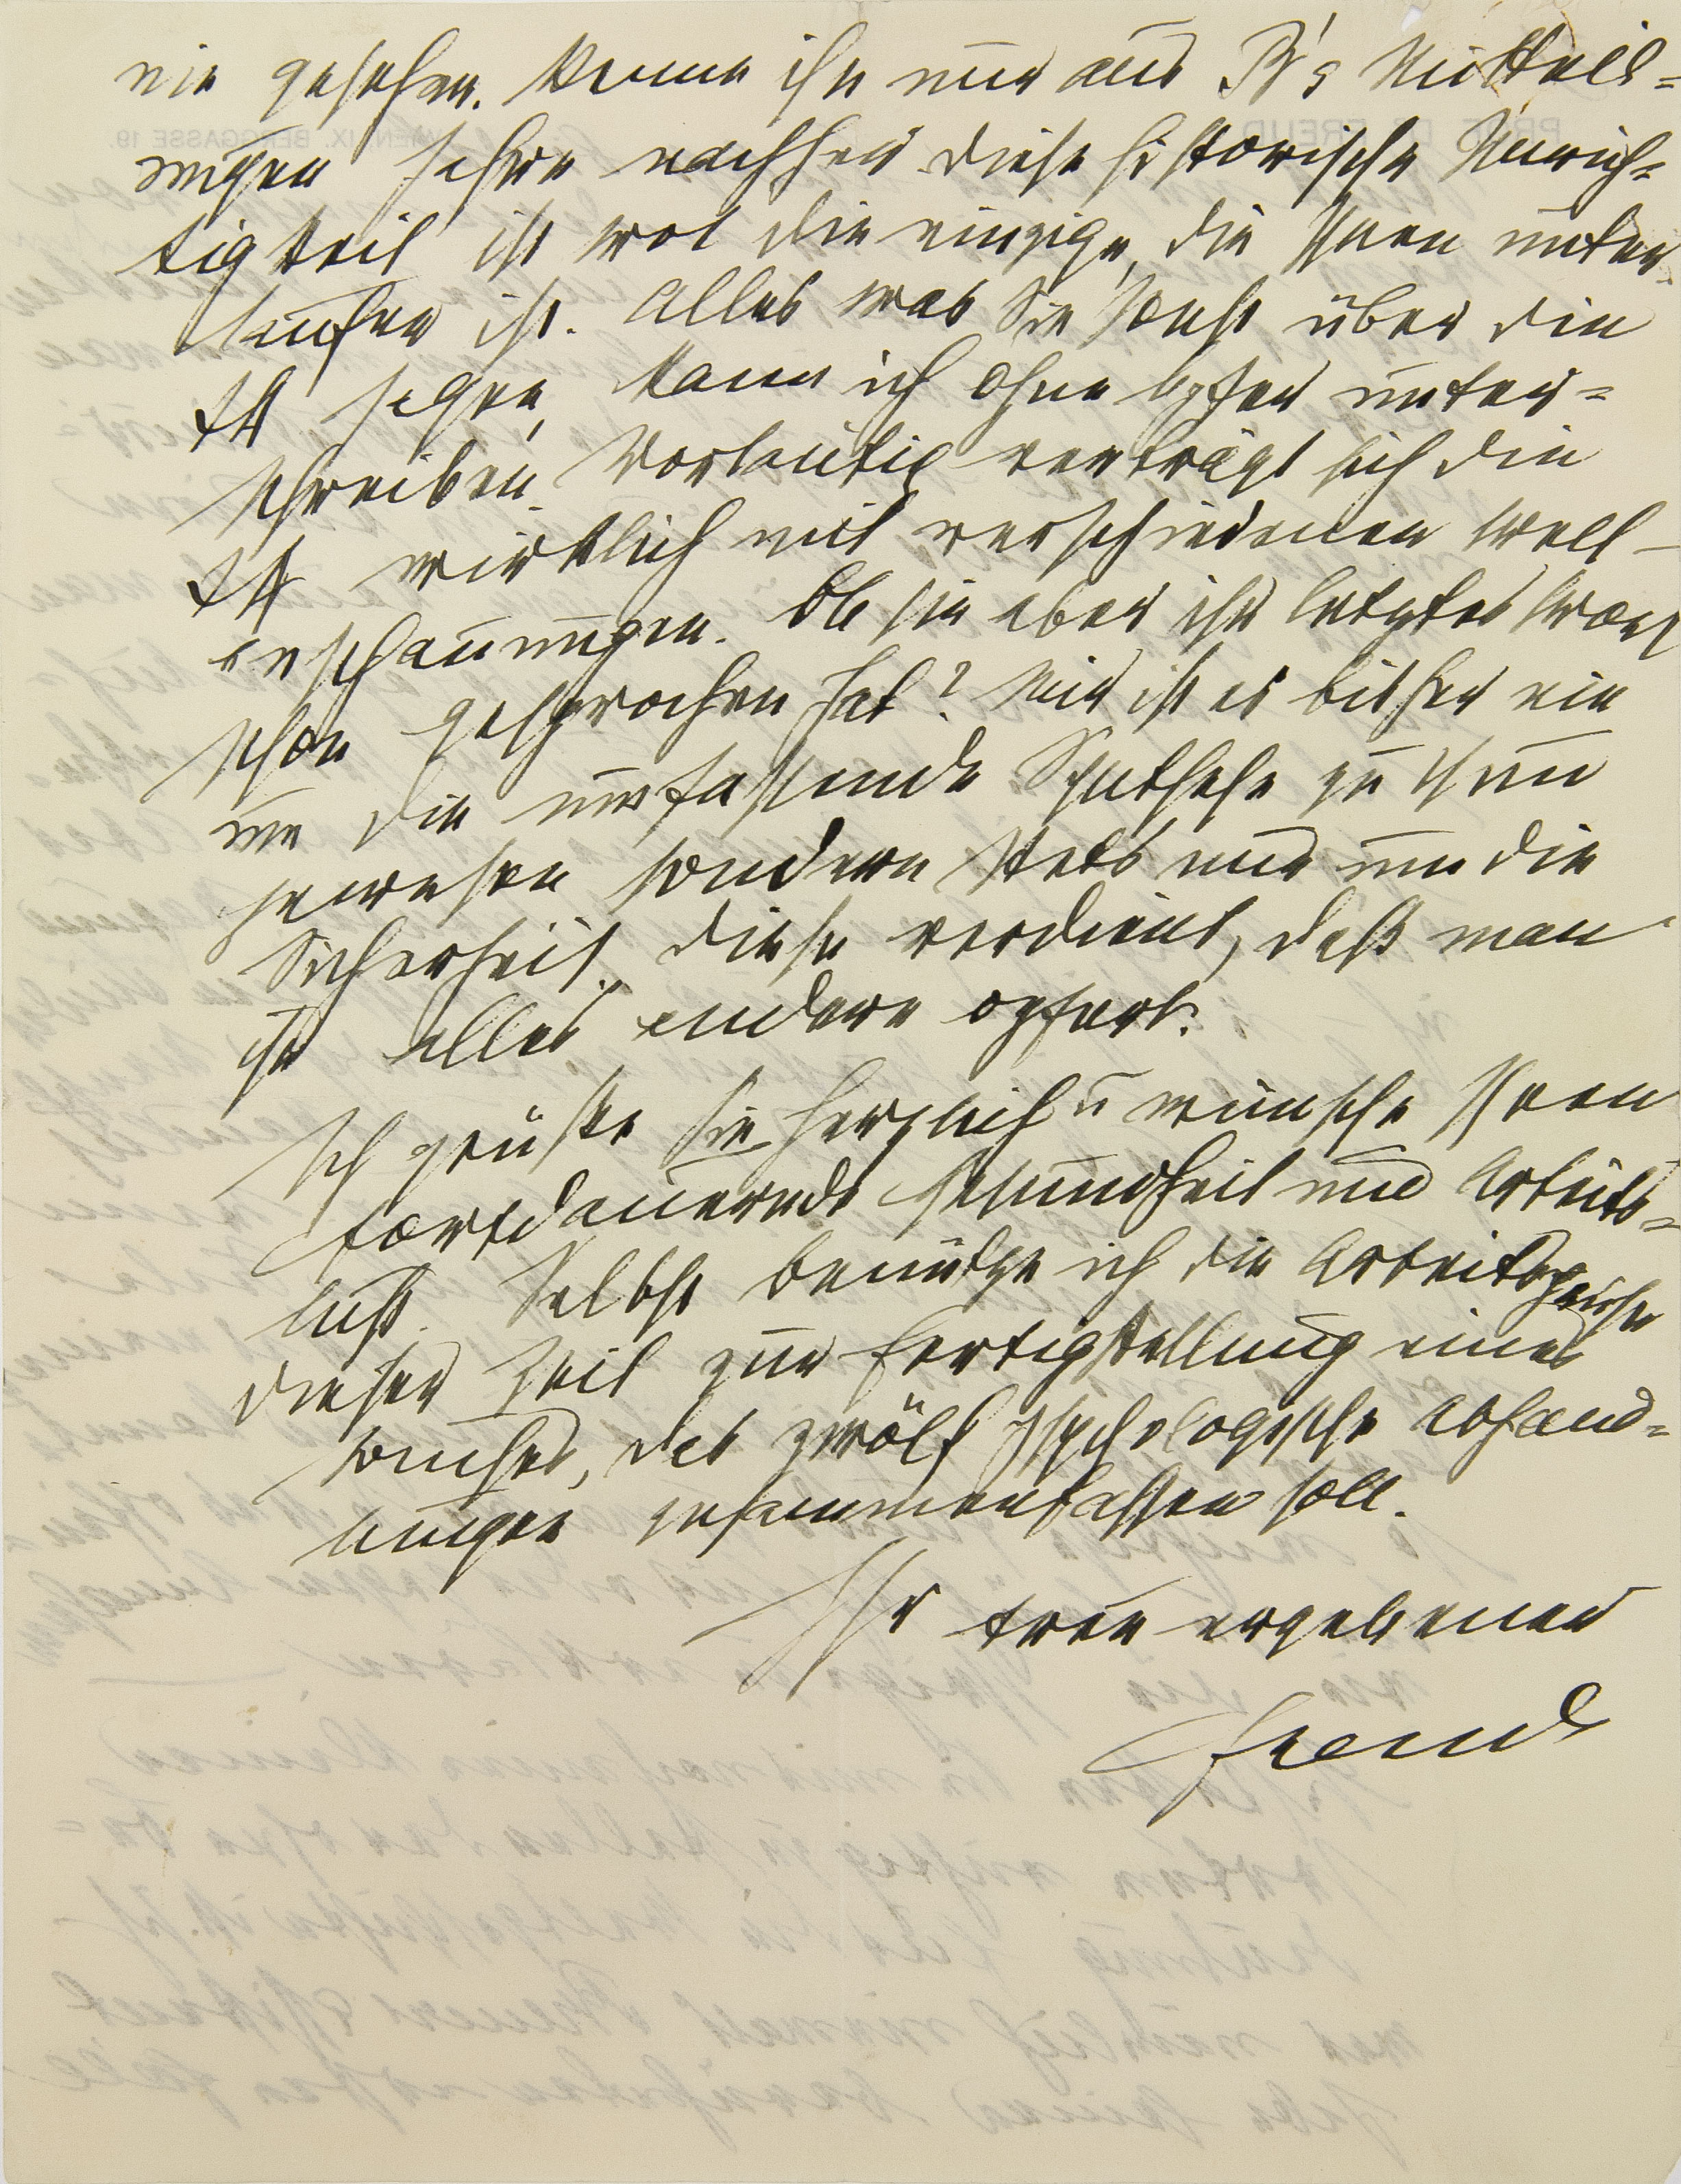 nie gesehen. Kenne ihn nur aus Br's Mitteil=
ungen Jahre nachher. diese historische Unrich=
tigkeit ist wol die einzige, die Ihnen unter
laufen ist. Alles was Sie sonst über die
ΨA sagen, kann ich ohne Opfer unter=
schreiben. Vorläufig verträgt sich die
ΨA wirklich mit verschiedenen Welt-
anschauungen. Ob sie aber ihr letztes Wort
schon gesprochen hat? Mir ist es bisher nie
um die umfassende Synthese zu thun
gewesen sondern stets nur um die
Sicherheit. diese verdient, daß man
ihr alles andere opfert.
Ich grüße Sie herzlich u wünsche Ihnen
fortdauernde Gesundheit und Arbeits=
lust. Selbst benütze ich die Arbeitspause
dieser Zeit zur Fertigstellung eines
Buches, das zwölf psychologische Abhand=
lungen zusammenfassen soll.
Ihr treu ergebener
Freud